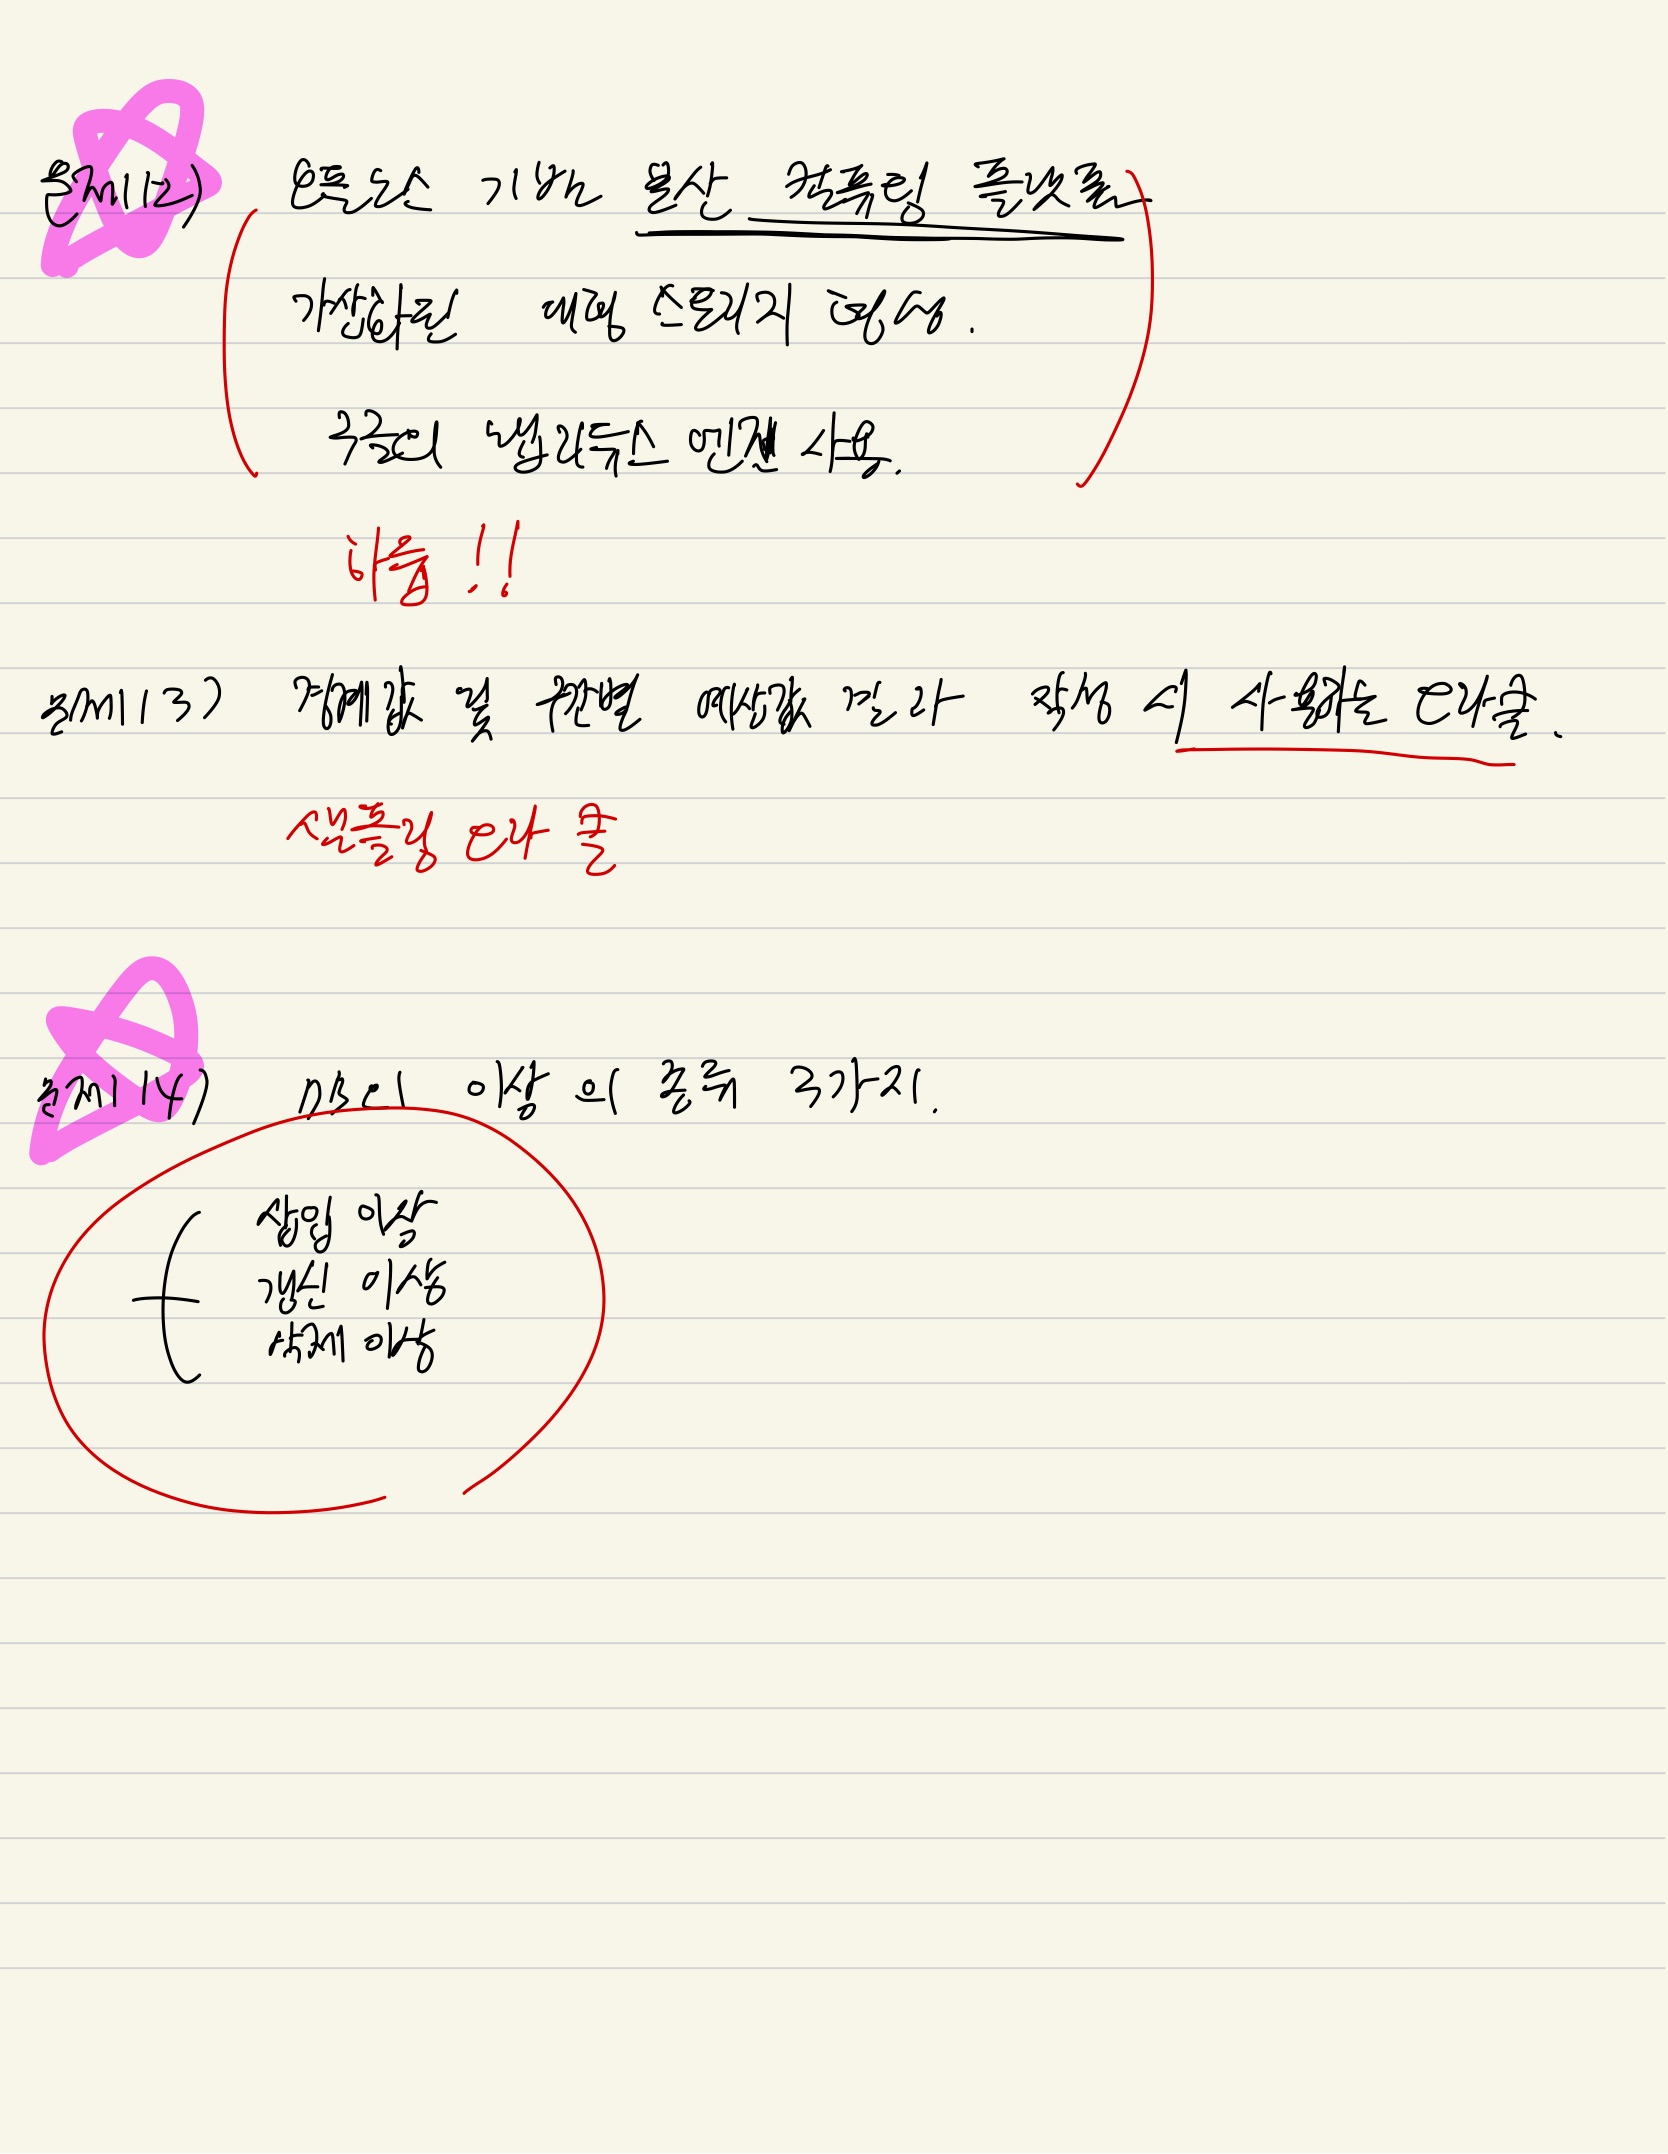 문제12) 오픈소스 기반 분산 컴퓨팅 플랫폼
가상화된 대형 스토리지 형성.
구글의 맵리듀스 엔진 사용.
하둡!!
문제13) 경계값 및 구간별 예상값 결과 작성 시 사용하는 오라클.
샘플링 오라클
문제14) 이상의 종류 3가지.
삽입 이상
갱신 이상
삭제 이상